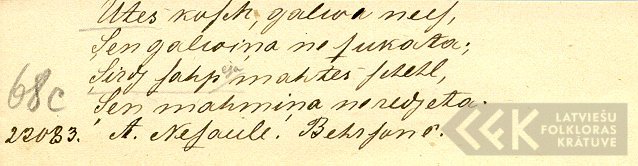 Utes kosch, galwa nees,
Sen galwiņa nesukata;
Sirds sahp, mahtes schehl,
Sen mahmiņa neredseta.
68c
22083. A. Nesaule. Behrsonē.
LATVIEŠU
FOLKLORAS
KRĀTUVE